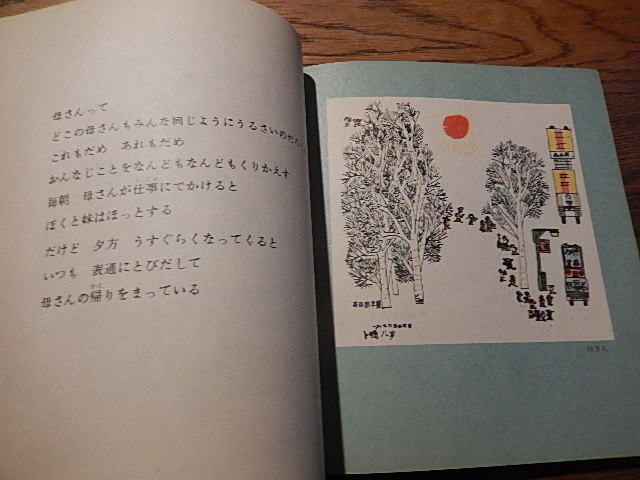 母さんって
どこの母さんもみんな同じようにうるさいのだろ
これもだめ　あれもだめ
おんなじことをなんどもなんどもくりかえす
毎朝　母さんが仕事にでかけると
ぼくと妹はほっとする
だけど　夕方　うすぐらくなってくると
いつも　表通にとびだして
母さんの帰りをまっている
母さん